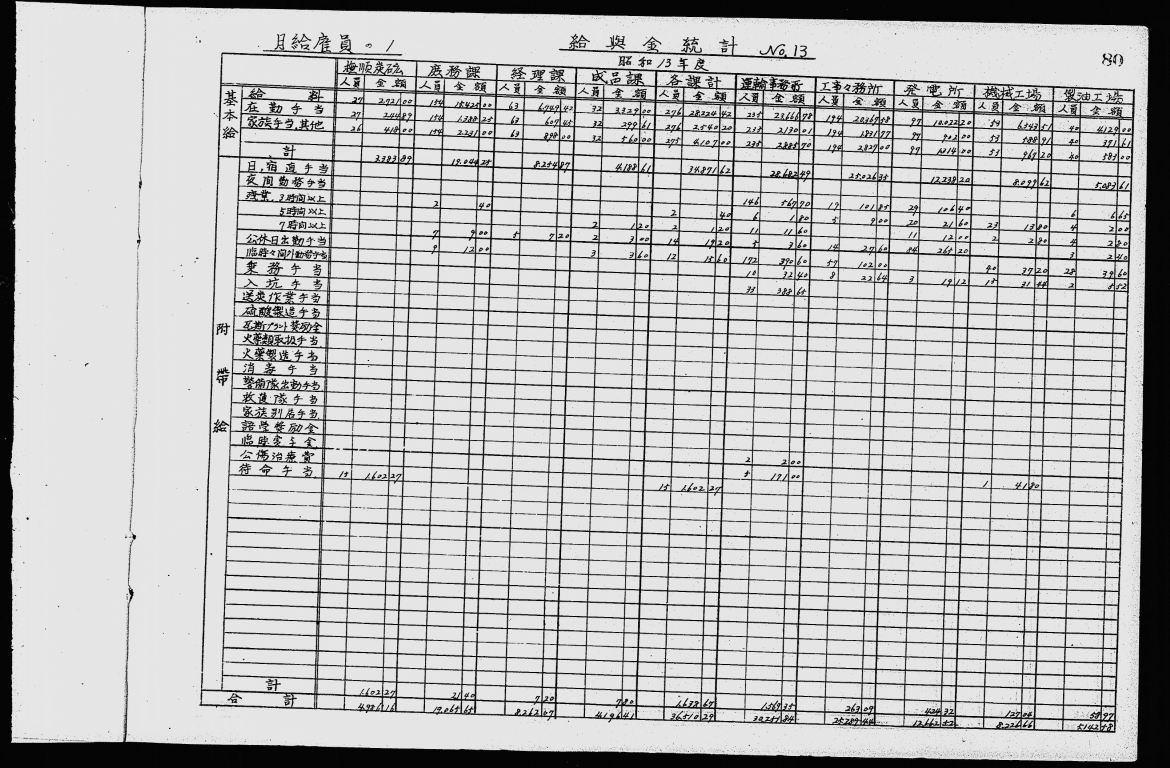 月給雇員。1
給與金統計 No.13
80
昭和13年度
撫順炭砿 庶務課 経理課 成品課 各課計 運輸事務所 工事々務所 発電所 機械工場 製油工場
人員 金額 人員 金額 人員 金額 人員 金額 人員 金額 人員 金額 人員 金額 人員 金額 人員 金額 人員 金額
基本給
給料 27 2,721 00 154 15,425 00 63 6,749 42 32 3,329 00 276 28,224 42 235 23,666 78 194 20,367 58 97 10,022 20 54 6,543 51 40 4,129 00
在勤手当 27 244 89 154 1,388 25 63 607 45 32 299 61 276 2,540 20 235 2,130 01 194 1,831 77 97 902 00 53 588 91 40 371 61
家族手当,其他 26 418 00 154 2,231 00 63 898 00 32 560 00 275 4,107 00 235 2,885 70 194 2,827 00 97 1,314 00 53 967 20 40 583 00
計 3,383 89 19,044 25 8,254 87 4,188 61 34,871 62 28,682 49 25,026 35 12,238 20 8,099 62 5,083 61
附帯給
日,宿直手当
夜間勤務手当 2 40 2 40 146 567 70 19 101 85 29 106 40 6 6 65
残業,3時間以上 6 1 80 5 9 00 20 21 60 23 13 80 4 2 00
5時間以上 2 1 20 2 1 20 11 11 60 11 12 00 2 2 80 4 2 80
7時間以上 7 9 00 5 7 20 2 3 00 14 19 20 5 3 60 14 27 60 84 265 20 3 2 40
公休日出勤手当 9 12 00 3 3 60 12 15 60 172 390 60 57 102 00 40 37 20 28 39 60
臨時々間外勤務手当 10 32 40 8 22 64 3 19 12 15 31 44 2 5 52
乗務手当 33 388 65
入坑手当
送炭作業手当
硫酸製造手当
瓦斯プラント奨励金
火薬類取扱手当
火薬製造手当
消毒手当
警備隊出動手当
救護隊手当
家族別居手当
語学奨励金
公傷治療費 2 2 00
待命手当 15 1,602 27 15 1,602 27 5 171 00 1 41 80
計 1,602 27 21 40 7 20 7 80 1,638 67 1,569 35 263 09 424 32 127 04 58 97
合計 4,986 16 19,065 65 8,262 07 4,196 41 36,510 29 30,251 84 25,289 44 12,662 52 8,226 66 5,142 58